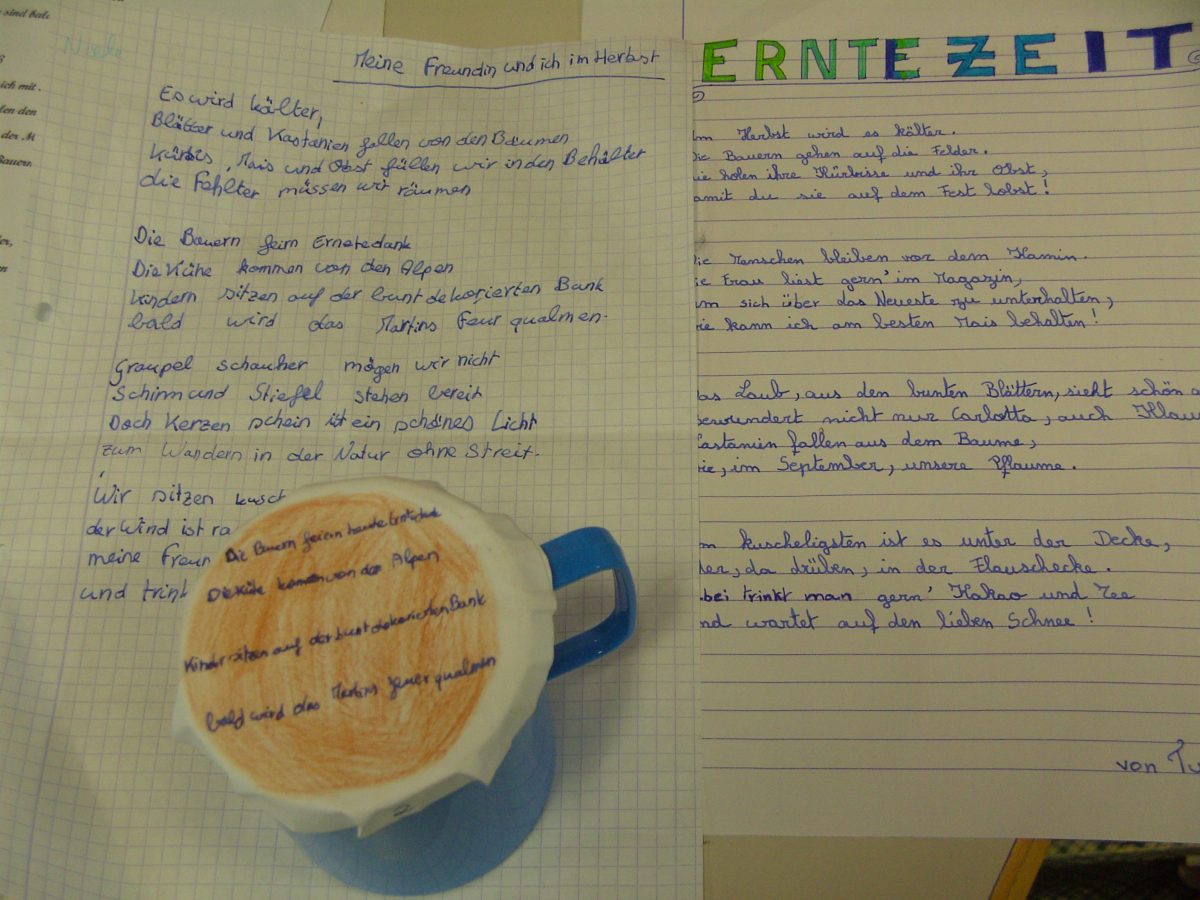 sind bald
ich mit.
den
der M
Bauern
Meine Freundin und ich im Herbst
Es wird kälter,
Blätter und Kastanien fallen von den Bäumen
Kürbis, Mais und Obst füllen wir in den Behälter
die Fehlter müssen wir räumen
Die Bauern feirn Ernetedank
Die Kühe kommen von den Alpen
Kindern sitzen auf der bunt dekorierten Bank
bald wird das Martins Feur qualmen.
Graupel schauher mögen wir nicht
Schirm und Stiefel stehen bereit
Doch Kerzen schein ist ein schönes Licht
zum Wandern in der Natur ohne Streit.
Wir sitzen kusch
der Wind ist ra
meine Freun
und trink
Die Bauern feiern heute
Die Kühe kommen von den Alpen
Kinder sitzen auf der bunt dekorierten Bank
bald wird das Martins feuer qualmen
2
ERNTEZEIT
Im Herbst wird es kälter.
Die Bauern gehen auf die Felder.
ie holen ihre Kürbisse und ihr Obst,
amit du sie auf dem Fest lobst!
ie Menschen bleiben vor dem Kamin.
ie Frau liest gern' im Magazin,
um sich über das Neueste zu unterhalten,
ie kann ich am besten Mais behalten!
as Laub, aus den bunten Blättern, sieht schön a
bewundert nicht nur Carlotta, auch Klau
Kastanin fallen aus dem Baume,
ie, im September, unsere Pflaume.
m kuscheligsten ist es unter der Decke,
der, da drüben, in der Flauschecke.
bei trinkt man gern' Kakao und Tee
nd wartet auf den lieben Schnee!
von Tu